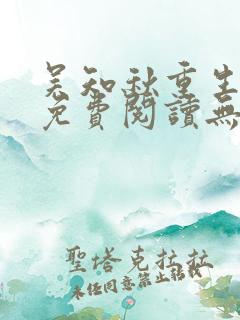 吴知秋重生
免費閱讀無
聖塔克拉拉
未經同意禁止轉載